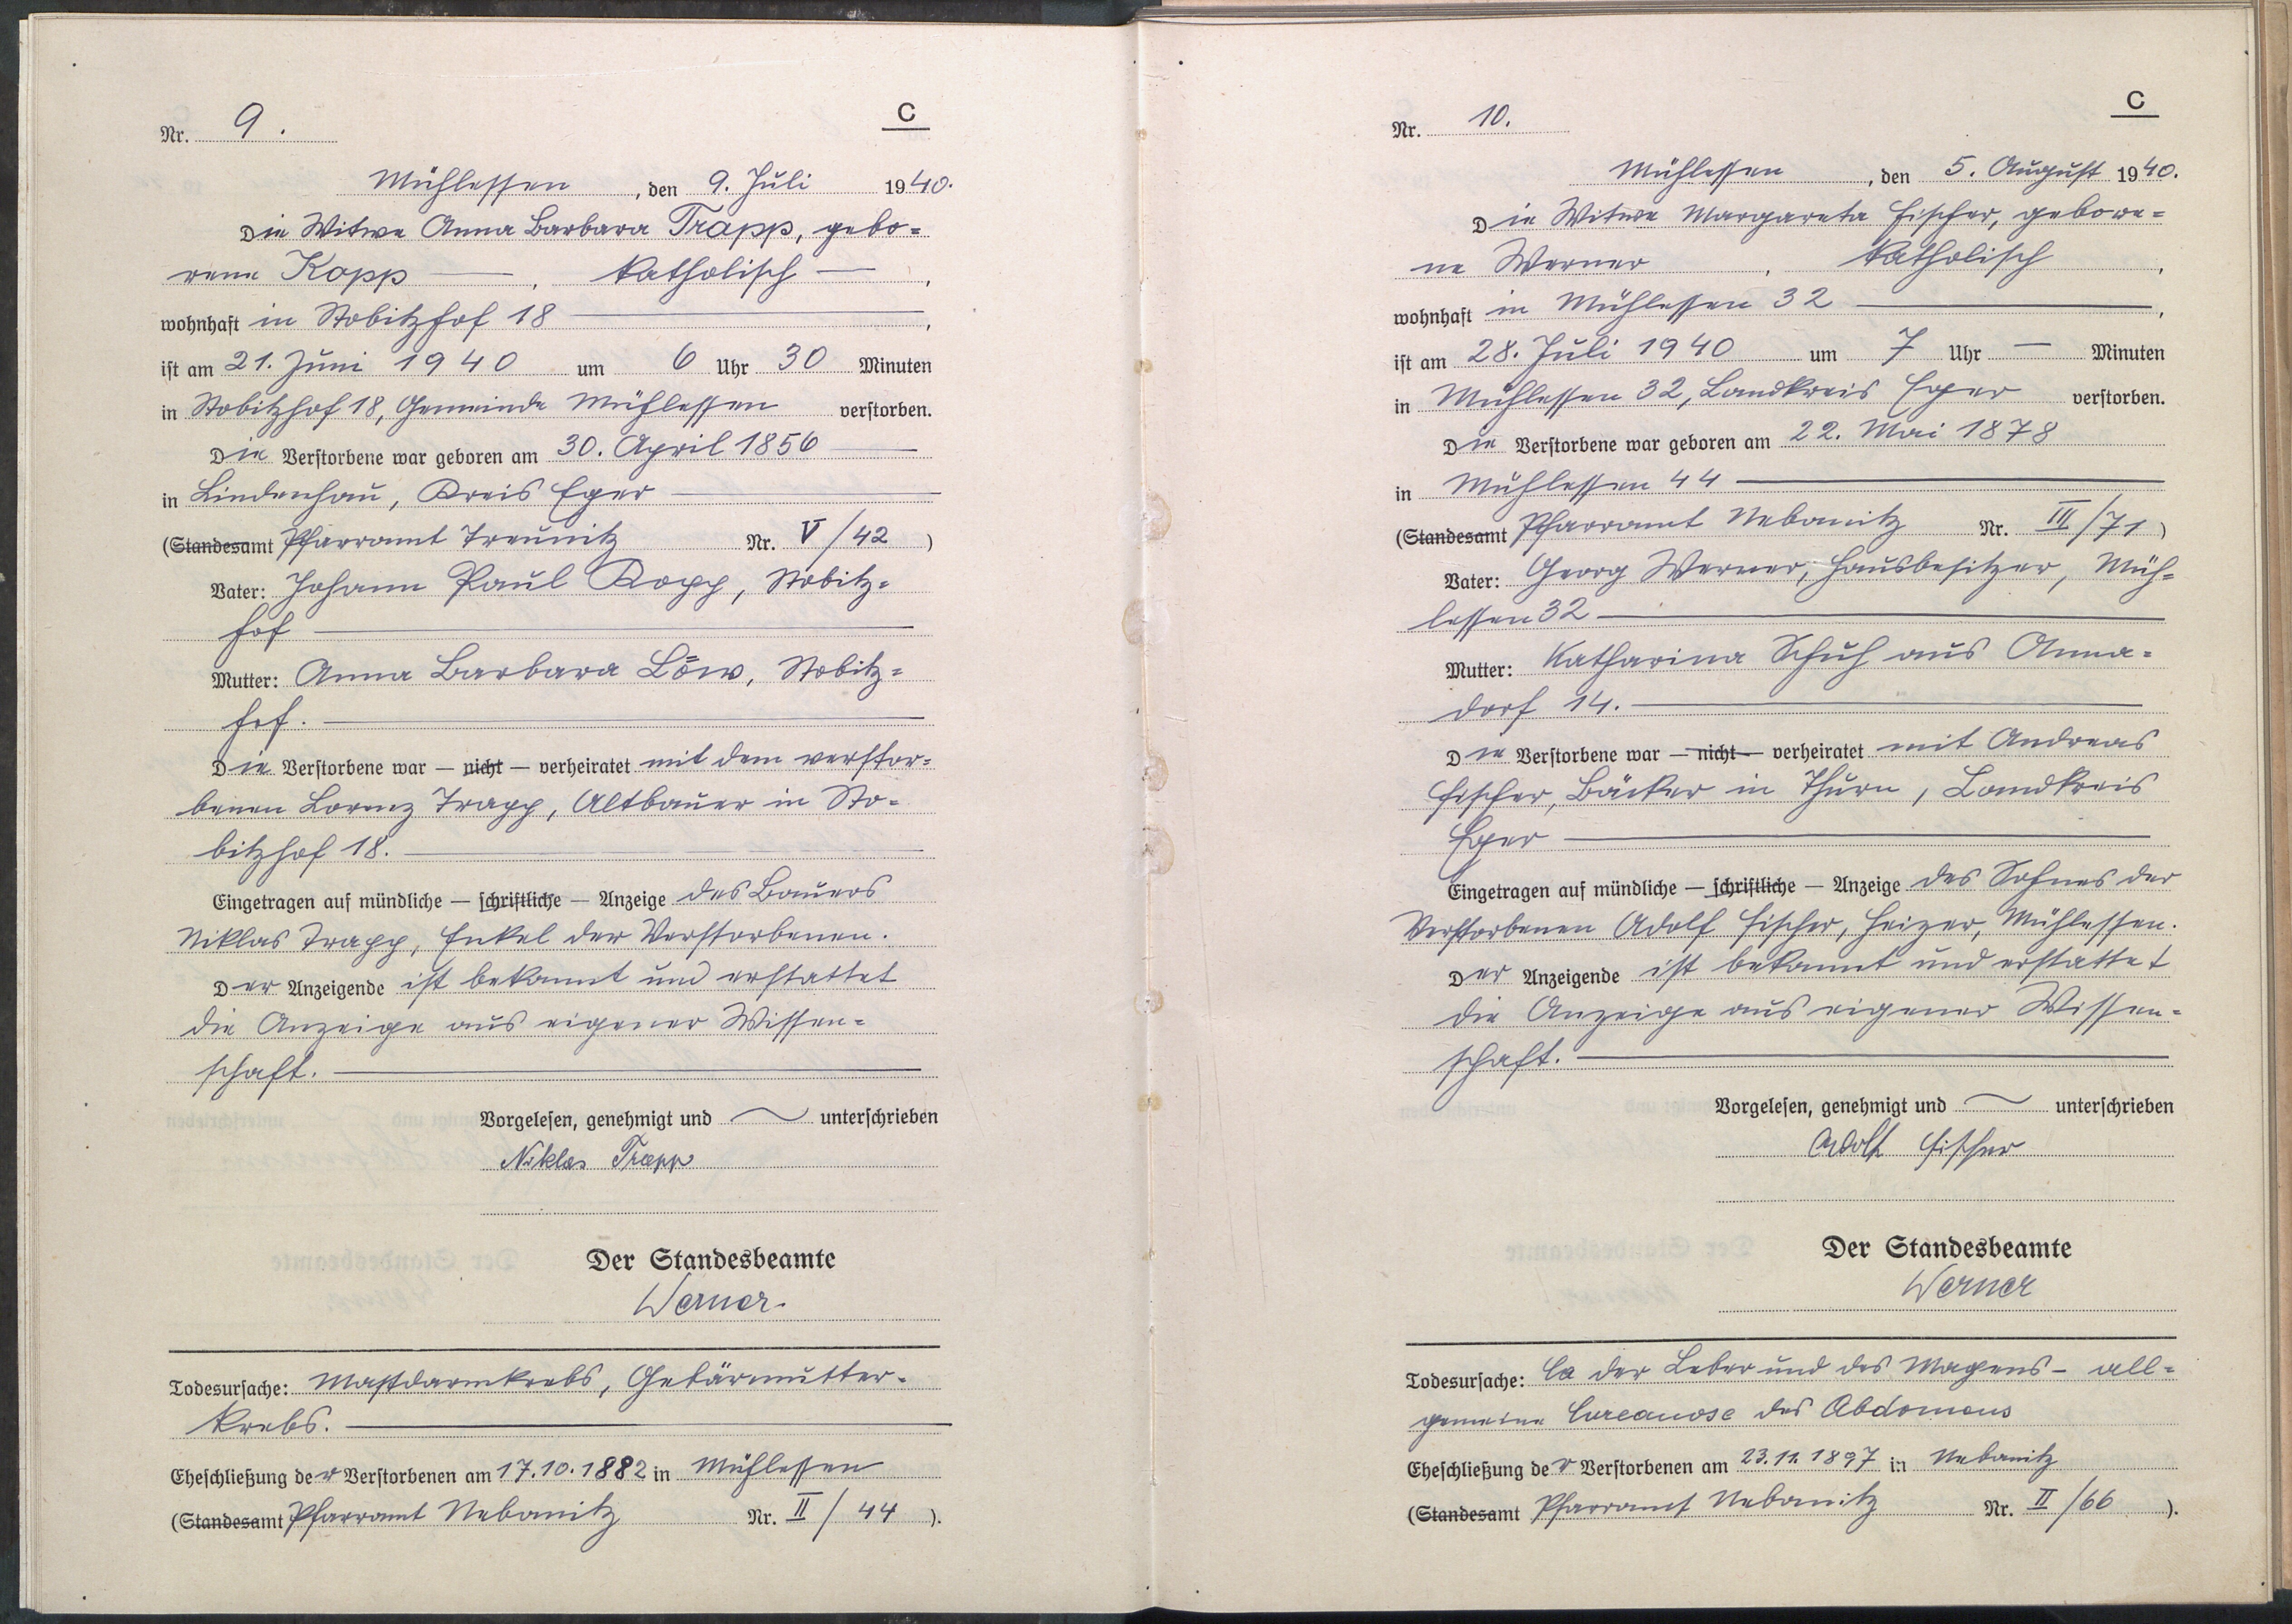 C
Nr. 9.
Mühlessen, den 9. Juli 1940.
Die Witwe Anna Barbara Trapp, gebo=
rene Kopp — , katholisch — ,
wohnhaft in Stobitzhof 18 — ,
ist am 21. Juni 1940 um 6 Uhr 30 Minuten
in Stobitzhof 18, Gemeinde Mühlessen verstorben.
Die Verstorbene war geboren am 30. April 1856 —
in Lindenhau, Kreis Eger —
(Standesamt Pfarramt Treunitz Nr. V/42)
Vater: Johann Paul Kopp, Stobitz=
hof —
Mutter: Anna Barbara Löw, Stobitz=
hof. —
Die Verstorbene war — nicht — verheiratet mit dem verstor=
benen Lorenz Trapp, Altbauer in Sto=
bitzhof 18. —
Eingetragen auf mündliche — schriftliche — Anzeige des Bauers
Niklas Trapp, Enkel der Verstorbenen.
Der Anzeigende ist bekannt und erstattet
die Anzeige aus eigener Wissen=
schaft. —
Vorgelesen, genehmigt und — unterschrieben
Niklas Trapp
Der Standesbeamte
Werner.
Todesursache: Mastdarmkrebs, Gebärmutter=
krebs. —
Eheschließung der Verstorbenen am 17.10.1882 in Mühlessen
(Standesamt Pfarramt Nebanitz Nr. II/44).
C
Nr. 10.
Mühlessen, den 5. August 1940.
Die Witwe Margareta Fischer, gebore=
ne Werner , katholisch ,
wohnhaft in Mühlessen 32 — ,
ist am 28. Juli 1940 um 7 Uhr — Minuten
in Mühlessen 32, Landkreis Eger verstorben.
Die Verstorbene war geboren am 22. Mai 1878
in Mühlessen 44 —
(Standesamt Pfarramt Nebanitz Nr. III/71)
Vater: Georg Werner, Hausbesitzer, Müh=
lessen 32 —
Mutter: Katharina Schuh aus Anna=
dorf 14. —
Die Verstorbene war — nicht — verheiratet mit Andreas
Fischer, Bäcker in Thurn, Landkreis
Eger —
Eingetragen auf mündliche — schriftliche — Anzeige des Sohnes der
Verstorbenen Adolf Fischer, Heizer, Mühlessen.
Der Anzeigende ist bekannt und erstattet
die Anzeige aus eigener Wissen=
schaft. —
Vorgelesen, genehmigt und — unterschrieben
Adolf Fischer
Der Standesbeamte
Werner
Todesursache: Ca der Leber und des Magens - all=
gemeine des Abdomens
Eheschließung der Verstorbenen am 23.11.1897 in Nebanitz
(Standesamt Pfarramt Nebanitz Nr. II/66).